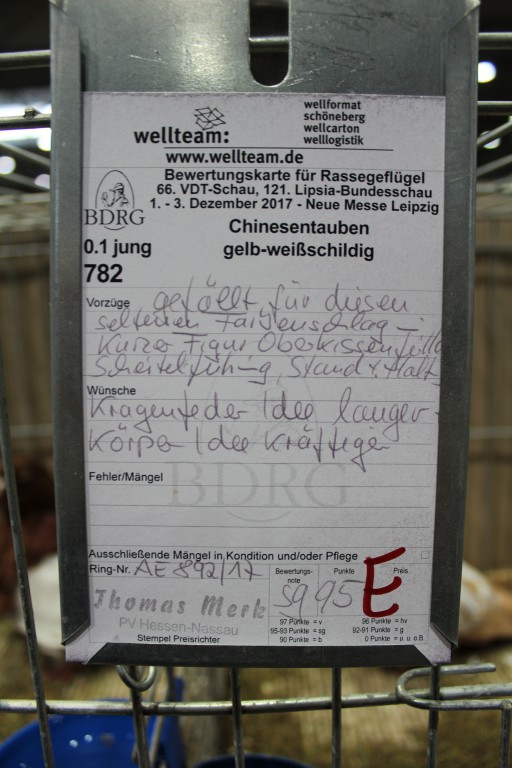 wellteam:
wellformat
schöneberg
wellcarton
welllogistik
www.wellteam.de
Bewertungskarte für Rassegeflügel
66. VDT-Schau, 121. Lipsia-Bundesschau
1. - 3. Dezember 2017 - Neue Messe Leipzig
BDRG
Chinesentauben
0.1 jung
gelb-weißschildig
782
Vorzüge gefällt für diesen
seltenen Farbenschlag -
kurze Figur Oberkissenfülle
Scheitelführung, Stand + Halt.
Wünsche
Kragenfeder Idee länger -
Körper Idee kräftiger
Fehler/Mängel
BDRG
Ausschließende Mängel in Kondition und/oder Pflege
Ring-Nr. AE 892/17
Bewertungs-note Punkte Preis
sg 95 E
Thomas Merk
PV Hessen-Nassau
Stempel Preisrichter
97 Punkte = v 96 Punkte = hv
95-93 Punkte = sg 92-91 Punkte = g
90 Punkte = b 0 Punkte = u. u. o.B.